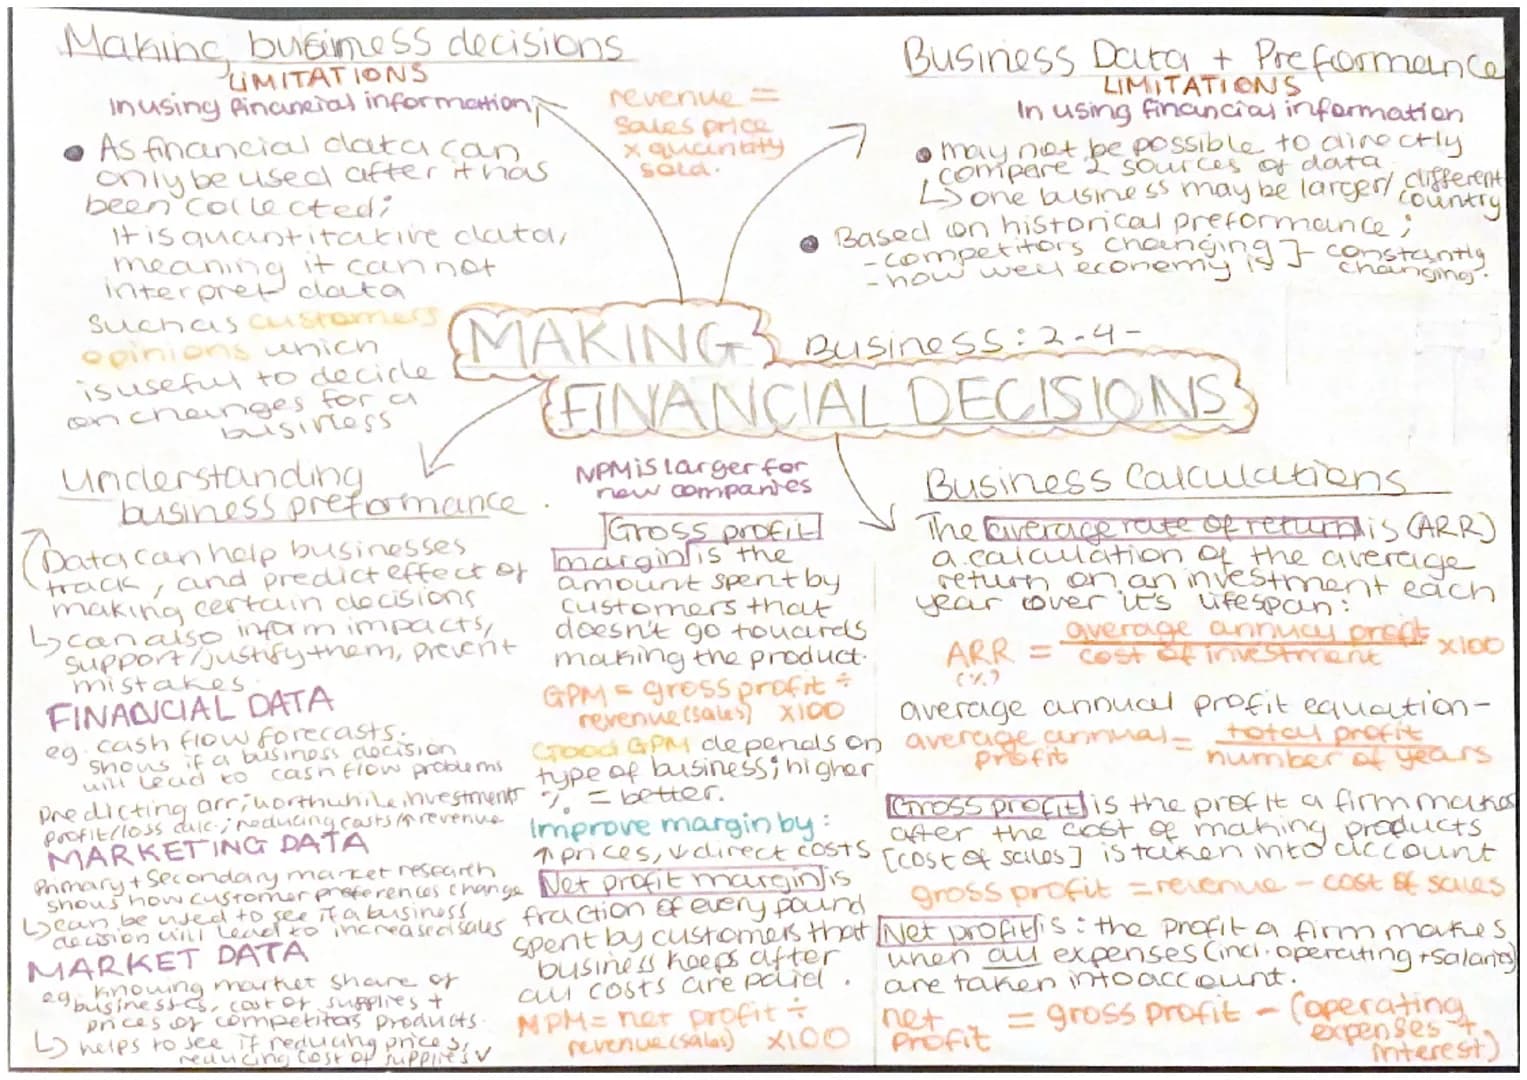 Making business decisions
LIMITATIONS
In using financial information
• As financial data can
only be used after it has
been collected;
It is quantitative data,
meaning it cannot
interpret data
such as customers
opinions which
is useful to decide
on changes for a
business
revenue =
sales price
x quantity
sold.
Business Data + Preformance
LIMITATIONS
In using financial information
• may not be possible to directly
compare 2 sources of data
↳ one business may be larger/ different
country
• Based on historical preformance;
- competitors changing ] - constantly
- how well economy is changing.
MAKING
Business: 2.4 -
FINANCIAL DECISIONS
Understanding
business preformance.
Data can help businesses
track, and predict effect of
making certain decisions
↳ can also inform impacts,
support/justify them, prevent
mistakes.
FINANCIAL DATA
eg. cash flow forecasts.
shows if a business decision
will lead to cash flow problems
Predicting arr; worthwhile investments
profit/loss calc.; reducing costs/↑ revenue
MARKETING DATA
Primary + Secondary market research
shows how customer preferences change
↳ can be used to see if a business
decision will lead to increased sales
MARKET DATA
eg. knowing market share of
businesses, cost of supplies +
prices of competitors products.
↳ helps to see if reducing prices,
reducing cost of supplies ✓
NPM is larger for
new companies
Gross profit
margin is the
amount spent by
customers that
doesn't go towards
making the product.
GPM = gross profit ÷
revenue (sales) x100
Good GPM depends on
type of business; higher
% = better.
Improve margin by:
↑ prices, ↓ direct costs
Net profit margin is
fraction of every pound
spent by customers that
business keeps after
all costs are paid.
NPM = net profit ÷
revenue (sales) x100
Business Calculations
The average rate of return is (ARR)
a calculation of the average
return on an investment each
year over it's lifespan:
average annual profit
ARR = x100
cost of investment
(%)
average annual profit equation -
average annual = total profit
profit number of years
Gross profit is the profit a firm makes
after the cost of making products
[cost of sales] is taken into account
gross profit = revenue - cost of sales
Net profit is: the profit a firm makes
when all expenses (incl. operating + salaries)
are taken into account.
net = gross profit - (operating
profit expenses +
interest)